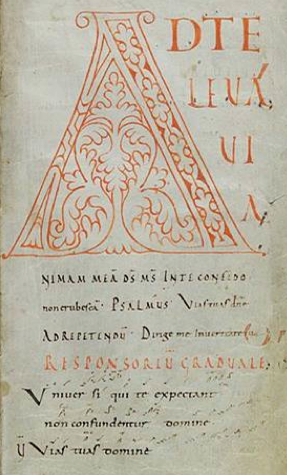 AD TE
LEUA
UI
A
NIMAM MEĀ DS MS INTE CONFIDO
non erubescā. PSALMUS Vias tuas dne
AD REPETENDŪ. Dirige me in veritate
RESPONSORIŪ GRADUALE
Vniver si qui te expectant
non confundentur domine
Vias tuas domine